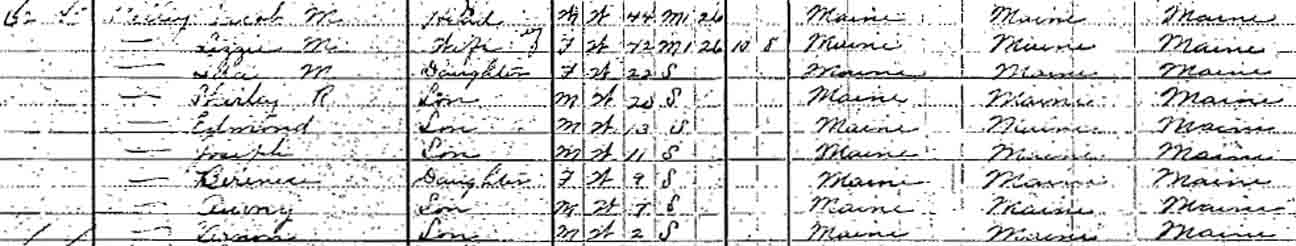 M. Head M W 44 M1 26 Maine Maine Maine
— Lizzie M. Wife F W 42 M1 26 10 8 Maine Maine Maine
— M Daughter F W 22 S Maine Maine Maine
— Shirley R Son M W 20 S Maine Maine Maine
— Edmond Son M W 13 S Maine Maine Maine
— Joseph Son M W 11 S Maine Maine Maine
— Berenice Daughter F W 9 S Maine Maine Maine
— Son M W 7 S Maine Maine Maine
— Son M W 2 S Maine Maine Maine